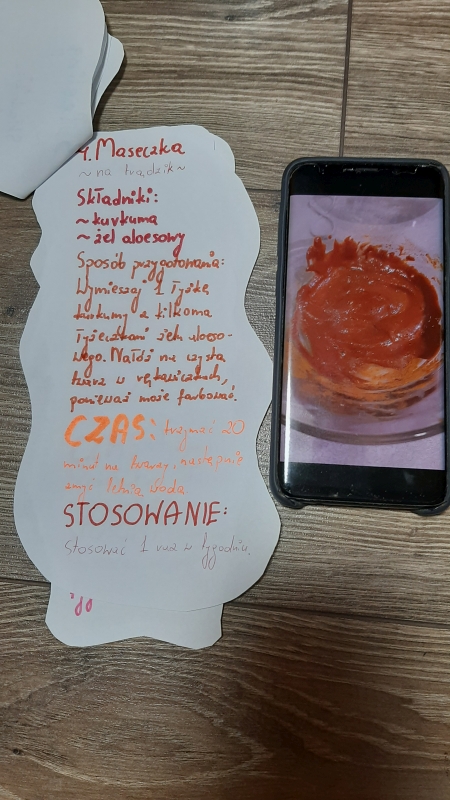 4. Maseczka
~ na trądzik ~
Składniki:
~ kurkuma
~ żel aloesowy
Sposób przygotowania:
Wymieszaj 1 łyżkę
kurkumy z kilkoma
łyżeczkami żelu aloeso-
wego. Nałóż na czystą
twarz w rękawiczkach,
ponieważ może farbować.
CZAS: trzymać 20
minut na twarzy, następnie
zmyć letnią wodą.
STOSOWANIE:
Stosować 1 raz w tygodniu.